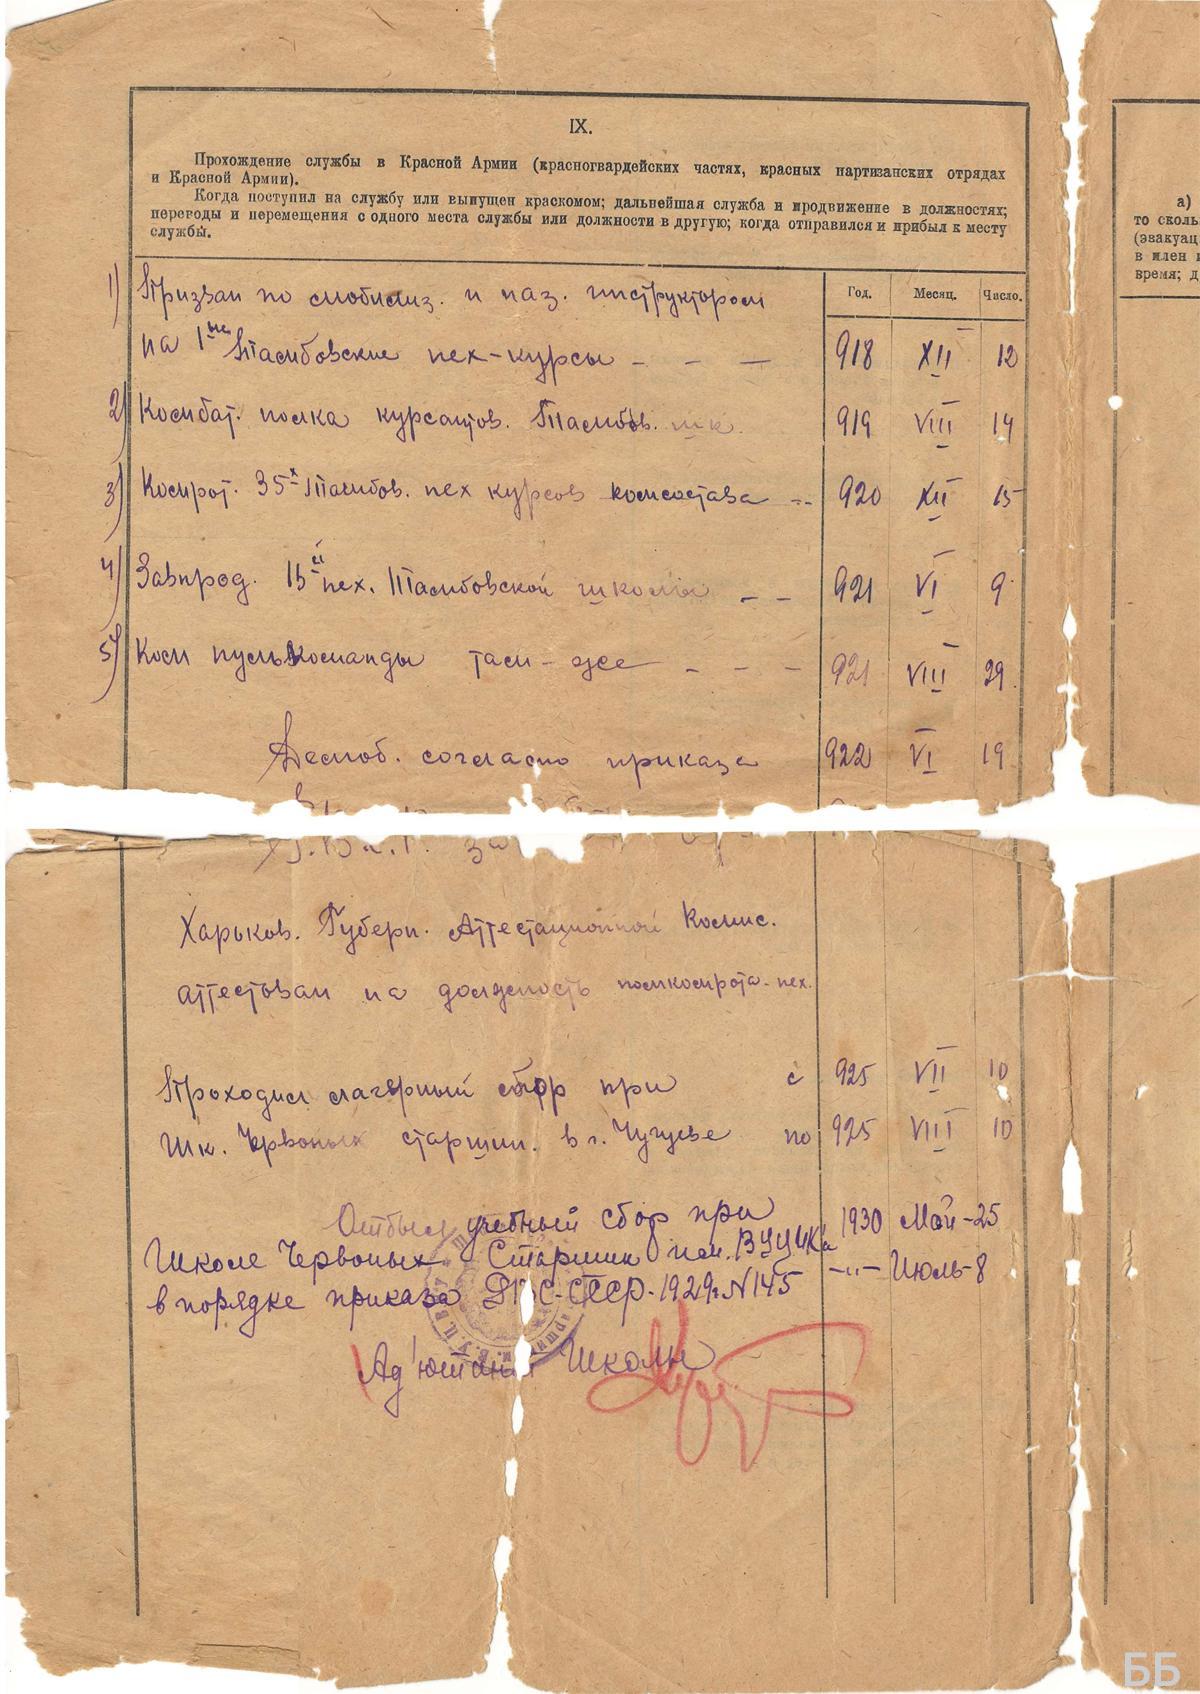 IX.
Прохождение службы в Красной Армии (красногвардейских частях, красных партизанских отрядах
и Красной Армии).
Когда поступил на службу или выпущен краскомом; дальнейшая служба и продвижение в должностях;
переводы и перемещения с одного места службы или должности в другую; когда отправился и прибыл к месту
службы.
Год. Месяц. Число.
1) Призван по мобилиз. и наз. инструктором
на 1ые Тамбовские пех-курсы - - — 918 XII 12
2) Комбат. полка курсантов. Тамбов. шк. 919 VIII 14
3) Комрот. 35х Тамбов. пех курсов комсостава -- 920 XII 15
4) Завпрод. 15й пех. Тамбовской школы - - 921 VI 9
5) Ком пульkоманды там-же - - - 921 VIII 29
Демоб. согласно приказа 922 VI 19
Харьков. Губерн. Аттестационной Комис.
аттестован на должность помкомрота пех.
Проходил лагерный сбор при с 925 VII 10
Шк. Червоных старшин. в г. Чугуеве по 925 VIII 10
Отбыл учебный сбор при 1930 Май-25
Школе Червоных Старшин им. ВУЦИКа -"- Июль-8
в порядке приказа СССР-1929г. N145
Ад'ютант Школы
а)
то сколь
(эвакуац
в плен и
время; д
ББ